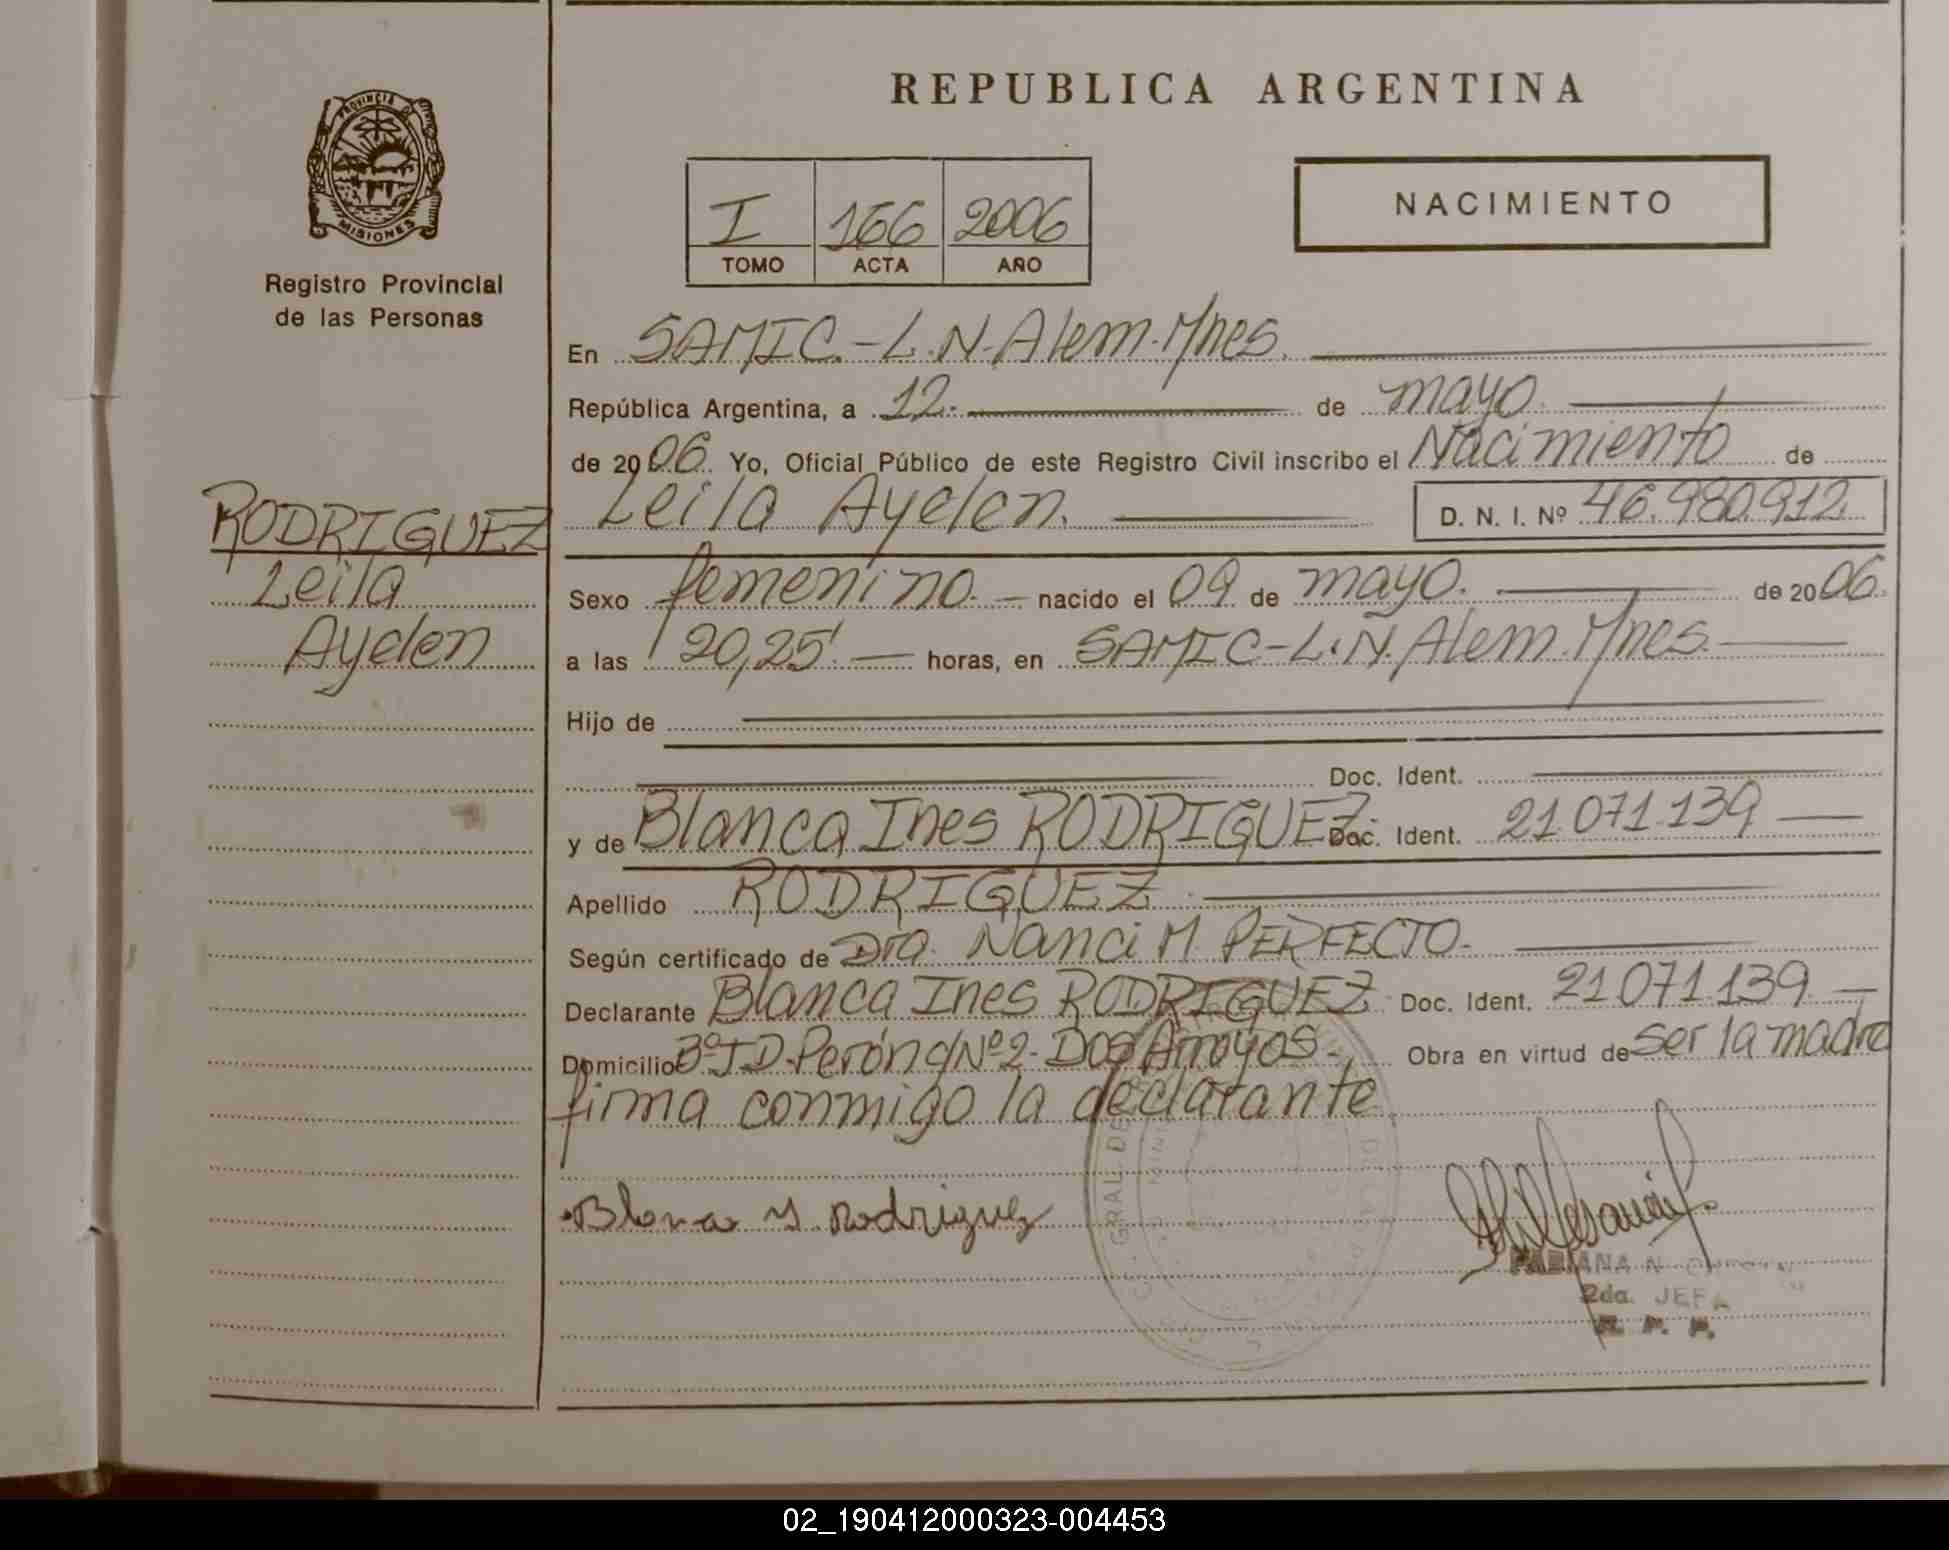 REPUBLICA ARGENTINA
PROVINCIA DE
MISIONES
Registro Provincial
de las Personas
I 166 2006
TOMO ACTA AÑO
NACIMIENTO
En SAMIC.-L.N.Alem.Mnes.
República Argentina, a 12. de mayo.
de 2006. Yo, Oficial Público de este Registro Civil inscribo el Nacimiento de
Leila Ayelen. D. N. I. Nº 46.980.912.
RODRIGUEZ
Leila
Ayelen
Sexo femenino. nacido el 09 de mayo. de 2006.
a las 20,25'. horas, en SAMIC-L.N.Alem.Mnes.
Hijo de
Doc. Ident.
y de Blanca Ines RODRIGUEZ. Doc. Ident. 21.071.139
Apellido RODRIGUEZ.
Según certificado de Dra. Nanci M. PERFECTO.
Declarante Blanca Ines RODRIGUEZ. Doc. Ident. 21.071.139
Domicilio Bº J.D.Perón Nº2-Dos Arroyos. Obra en virtud de ser la madre
firma conmigo la declarante
GRAL. DE
Blanca Y Rodriguez
FABIANA N.
2da. JEFA
R. P. P.
02_190412000323-004453